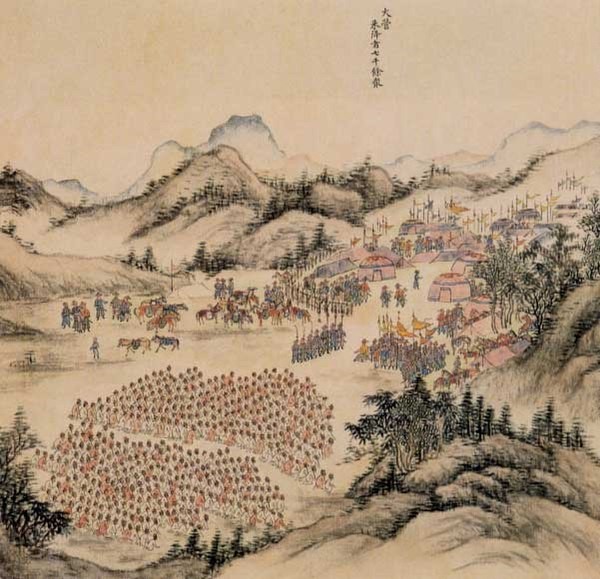 大營
來降者七千餘衆